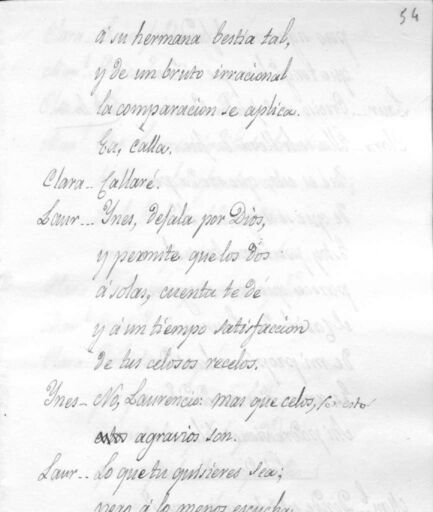 54
á su hermana bestia tal,
y de un bruto irracional
la comparacion se aplica.
Ea, calla.
Clara.. Callaré.
Laur... Ynes, dejala por Dios,
y permite que los dos
á solas, cuenta te dé
y á un tiempo satisfaccion
de tus celosos recelos.
Ynes.. No, Laurencio: mas que celos, por esto
agravios son.
Laur.. Lo que tu quisieres sea;
pero á lo menos escucha